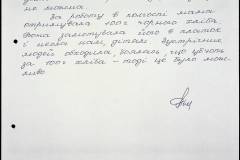 не можна.
За роботу в колгоспі мама
отримувала 400г чорного хліба.
Вона замотувала його в платок
і несла нам, дітям. Зустрічних
людей обходила, боялась, що уб'ють
за 400г хліба – тоді це було мож-
ливо